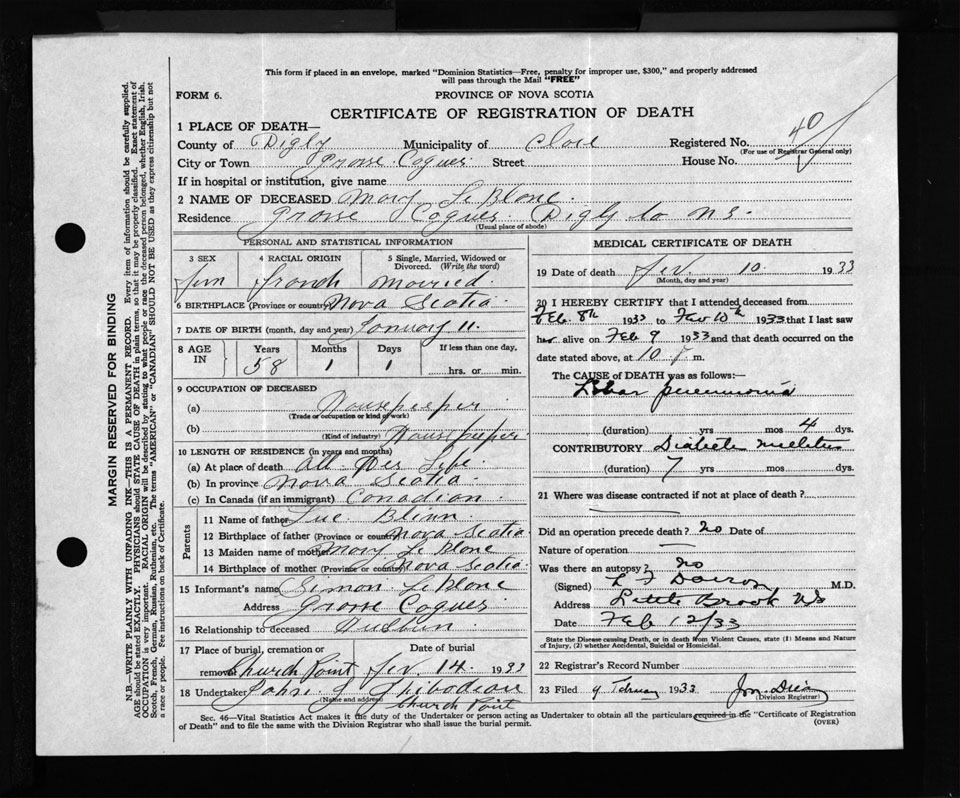 This form if placed in an envelope, marked "Dominion Statistics—Free, penalty for improper use, $300," and properly addressed
will pass through the Mail "FREE"
FORM 6.
PROVINCE OF NOVA SCOTIA
CERTIFICATE OF REGISTRATION OF DEATH
1 PLACE OF DEATH—
County of Digby Municipality of Clare Registered No. 40
(For use of Registrar General only)
City or Town Grosse Coques Street House No.
If in hospital or institution, give name
2 NAME OF DECEASED Mary LeBlanc
Residence Grosse Coques Digby Co N.S.
(Usual place of abode)
PERSONAL AND STATISTICAL INFORMATION
3 SEX 4 RACIAL ORIGIN 5 Single, Married, Widowed or
Divorced. (Write the word)
Fem French Married
6 BIRTHPLACE (Province or country) Nova Scotia
7 DATE OF BIRTH (month, day and year) January 11.
8 AGE IN Years Months Days If less than one day,
58 1 1 hrs. or min.
9 OCCUPATION OF DECEASED
(a) Housekeeper
(Trade or occupation or kind of work)
(b) Housekeeper
(Kind of industry)
10 LENGTH OF RESIDENCE (in years and months)
(a) At place of death All Her Life
(b) In province Nova Scotia
(c) In Canada (if an immigrant) Canadian
Parents
11 Name of father Luc Blinn
12 Birthplace of father (Province or country) Nova Scotia
13 Maiden name of mother Mary LeBlanc
14 Birthplace of mother (Province or country) Nova Scotia
15 Informant's name Simon LeBlanc
Address Grosse Coques
16 Relationship to deceased
17 Place of burial, cremation or
removal Church Point
Date of burial
Fev. 14. 1933
18 Undertaker John J Thibodeau
(Name and address) Church Point
MEDICAL CERTIFICATE OF DEATH
19 Date of death Fev. 10 1933
(Month, day and year)
20 I HEREBY CERTIFY that I attended deceased from
Feb. 8th 1933 to Fev 10th 1933 that I last saw
her alive on Feb 9 1933 and that death occurred on the
date stated above, at 10 P m.
The CAUSE OF DEATH was as follows:—
Lobar pneumonia
(duration) yrs mos 4 dys.
CONTRIBUTORY Diabetes Mellitus
(duration) 7 yrs mos dys.
21 Where was disease contracted if not at place of death?
Did an operation precede death? no Date of
Nature of operation —
Was there an autopsy? no
(Signed) M.D.
Address Little Brook NS
Date Feb 12/33
State the Disease causing Death, or in death from Violent Causes, state (1) Means and Nature
of Injury, (2) whether Accidental, Suicidal or Homicidal.
22 Registrar's Record Number
23 Filed 9 February 1933
(Division Registrar)
Sec. 46—Vital Statistics Act makes it the duty of the Undertaker or person acting as Undertaker to obtain all the particulars required in the "Certificate of Registration
of Death" and to file the same with the Division Registrar who shall issue the burial permit.
(OVER)
MARGIN RESERVED FOR BINDING
N.B.—WRITE PLAINLY WITH UNFADING INK—THIS IS A PERMANENT RECORD. Every item of information should be carefully supplied.
AGE should be stated EXACTLY. PHYSICIANS should STATE CAUSE OF DEATH in plain terms, so that it may be properly classified. Exact statement of
OCCUPATION is very important. RACIAL ORIGIN will be described by stating to what people or race the deceased person belonged, whether English, Irish,
Scotch, French, German, Russian, Ruthenian, etc. The terms "AMERICAN" or "CANADIAN" SHOULD NOT BE USED as they express citizenship but not
a race or people. See instructions on back of Certificate.